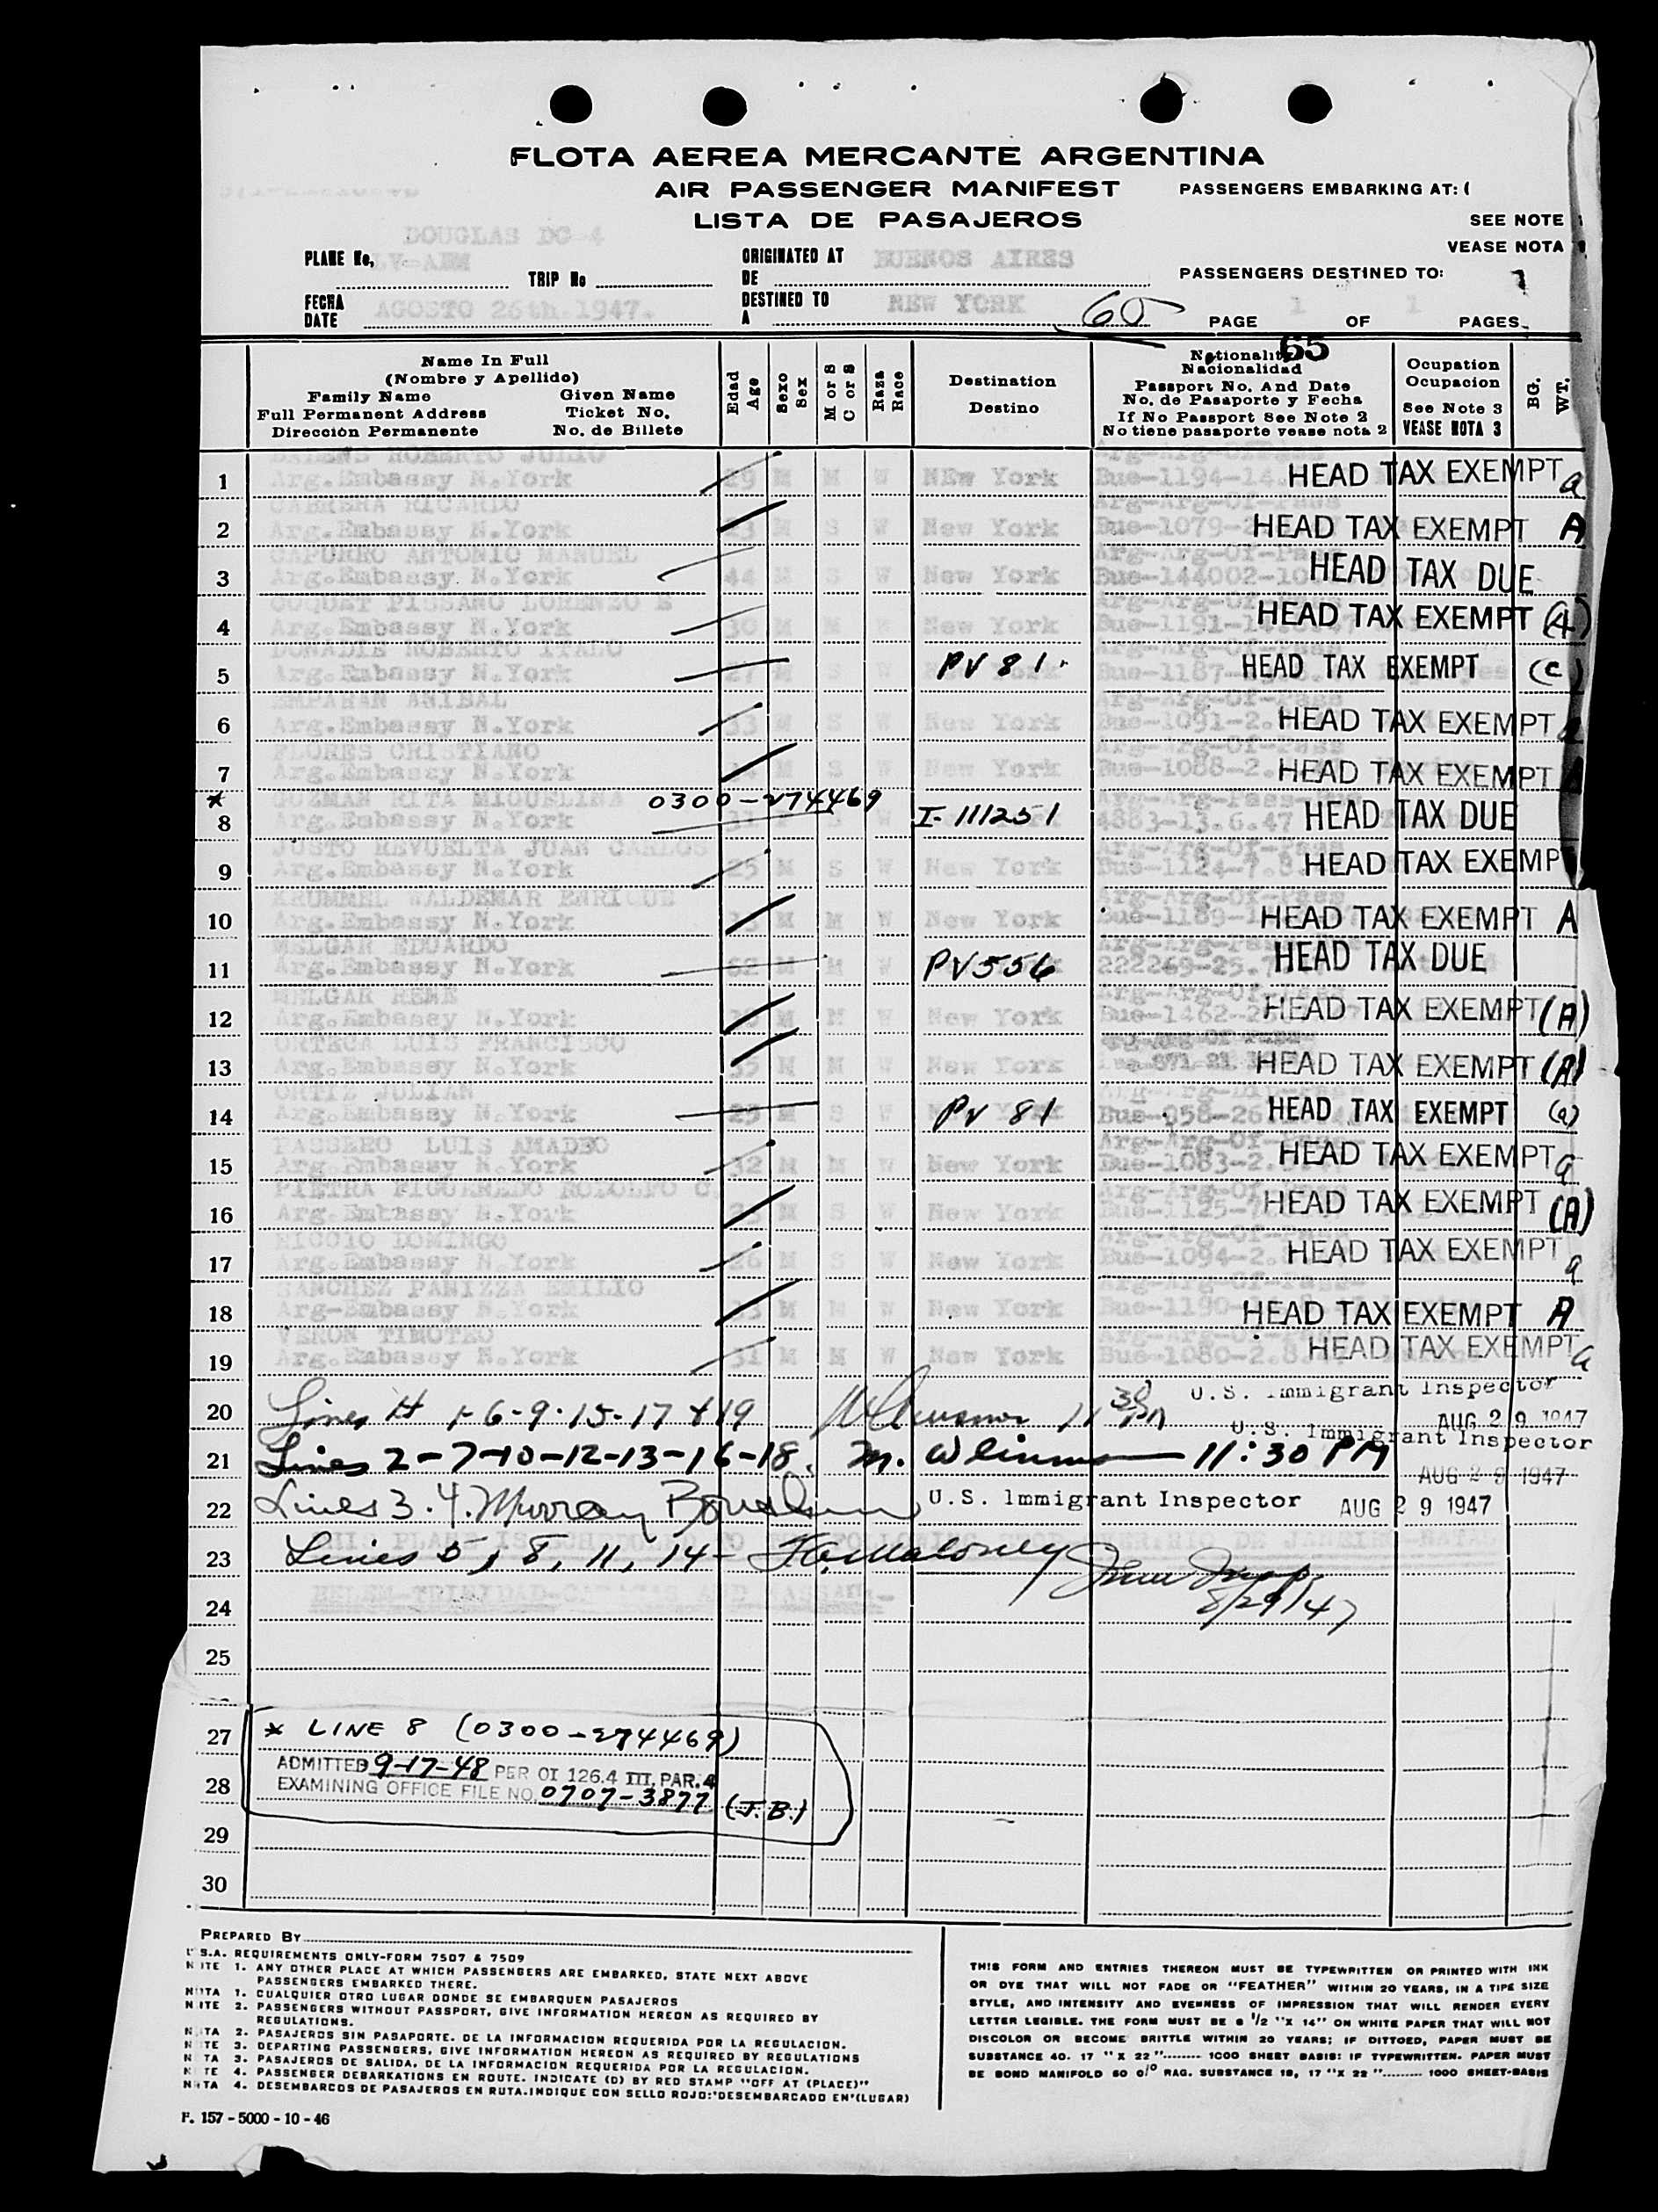 FLOTA AEREA MERCANTE ARGENTINA
AIR PASSENGER MANIFEST
PASSENGERS EMBARKING AT: (
LISTA DE PASAJEROS
SEE NOTE
DOUGLAS DC-4
VEASE NOTA
PLANE No, LV-ABM
TRIP No
ORIGINATED AT BUENOS AIRES
DE
PASSENGERS DESTINED TO:
FECHA
DATE AGOSTO 26th.1947.
DESTINED TO NEW YORK
A
60
PAGE 1 OF 1 PAGES
65
Name In Full
(Nombre y Apellido)
Family Name Given Name
Full Permanent Address Ticket No.
Dirección Permanente No. de Billete
Edad
Age
Sexo
Sex
M or S
C or S
Raza
Race
Destination
Destino
Nationality
Nacionalidad
Passport No. And Date
No. de Pasaporte y Fecha
If No Passport See Note 2
No tiene pasaporte vease nota 2
Ocupation
Ocupacion
See Note 3
VEASE NOTA 3
BG.
WT.
ROBERTO JULIO
1 Arg.Embassy N.York 29 M M W NEw York Bue-1194-14. HEAD TAX EXEMPT a
CABRERA RICARDO Arg-Arg-Of-Pass
2 Arg.Embassy N.York M S W New York Bue-1079-2 HEAD TAX EXEMPT A
CAPURRO ANTONIO MANUEL Arg-Arg-Of-Pass
3 Arg.Embassy N.York 44 M S W New York Bue-144002-10 HEAD TAX DUE
COUQUET PISSANO LORENZO E Arg-Arg-Of-Pass
4 Arg.Embassy N.York 30 M M W New York Bue-1191-14.8.47 HEAD TAX EXEMPT (A)
DONADIE ROBERTO ITALO Arg-Arg-Of-Pass
5 Arg.Embassy N.York 27 M S W PV 81 Bue-1187- HEAD TAX EXEMPT (c)
EMPARAN ANIBAL Arg-Arg-Of-Pass
6 Arg.Embassy N.York 33 M S W New York Bue-1091-2. HEAD TAX EXEMPT
FLORES CRISTIANO Arg-Arg-Of-Pass
7 Arg.Embassy N.York M S W New York Bue-1088-2. HEAD TAX EXEMPT
* GUZMAN RITA MIQUELINA 0300-274469 Arg-Arg-Pass-Bue
8 Arg.Embassy N.York 31 W I-111251 4883-13.6.47 HEAD TAX DUE
JUSTO REVUELTA JUAN CARLOS Arg-Arg-Of-Pass
9 Arg.Embassy N.York 25 M S W New York Bue-1124-7.8. HEAD TAX EXEMP
KRUMMEL WALDEMAR ENRIQUE Arg-Arg-Of-Pass
10 Arg.Embassy N.York M M W New York Bue-1189-1 HEAD TAX EXEMPT A
MELGAR EDUARDO
11 Arg.Embassy N.York 62 M M W PV 556 222269-25.7 HEAD TAX DUE
MELGAR RENE Arg-Arg-Of-Pass
12 Arg.Embassy N.York M M W New York Bue-1462-2 HEAD TAX EXEMPT (A)
ORTEGA LUIS FRANCISCO
13 Arg.Embassy N.York 35 M M W New York 971-21. HEAD TAX EXEMPT (A)
ORTIZ JULIAN Arg-Arg-Dip-Pass
14 Arg.Embassy N.York 23 M S W PV 81 Bue-958-26. HEAD TAX EXEMPT (a)
PASSERO LUIS AMADEO Arg-Arg-Of-Pass-
15 Arg.Embassy N.York 32 M M W New York Bue-1083-2. HEAD TAX EXEMPT a
PIETRA FIGUEREDO RODOLFO C. Arg-Arg-Of-Pass
16 Arg.Embassy N.York M S W New York Bue-1125-7 HEAD TAX EXEMPT (A)
RICCIO DOMINGO Arg-Arg-Of-Pass
17 Arg.Embassy N.York 26 M S W New York Bue-1094-2. HEAD TAX EXEMPT a
SANCHEZ PANIZZA EMILIO Arg-Arg-Of-Pass-
18 Arg-Embassy N.York M M W New York Bue-1190- HEAD TAX EXEMPT A
VERON TIMOTEO Arg-Arg-Of-Pass
19 Arg.Embassy N.York 31 M M W New York Bue-1080-2.8. HEAD TAX EXEMPT a
U.S. Immigrant Inspector
20 Lines 1-6-9-15-17 & 19 AUG 29 1947
U.S. Immigrant Inspector
21 Lines 2-7-10-12-13-16-18. 11:30 PM
AUG 29 1947
22 Lines 3.4. Murray U.S. Immigrant Inspector AUG 29 1947
THIS PLANE IS SCHEDULED TO RIO DE JANEIRO-NATAL
23 Lines 5, 8, 11, 14- Maloney
BELEM-TRINIDAD-CARACAS AND NASSAU.-
24 8/29/47
25
27 * LINE 8 (0300-274469)
ADMITTED 9-17-48 PER OI 126.4 III, PAR.4
28 EXAMINING OFFICE FILE NO. 0707-3877 (J.B.)
29
30
PREPARED BY
U.S.A. REQUIREMENTS ONLY-FORM 7507 & 7509
NOTE 1. ANY OTHER PLACE AT WHICH PASSENGERS ARE EMBARKED, STATE NEXT ABOVE
PASSENGERS EMBARKED THERE.
NOTA 1. CUALQUIER OTRO LUGAR DONDE SE EMBARQUEN PASAJEROS
NOTE 2. PASSENGERS WITHOUT PASSPORT, GIVE INFORMATION HEREON AS REQUIRED BY
REGULATIONS.
NOTA 2. PASAJEROS SIN PASAPORTE. DE LA INFORMACION REQUERIDA POR LA REGULACION.
NOTE 3. DEPARTING PASSENGERS, GIVE INFORMATION HEREON AS REQUIRED BY REGULATIONS
NOTA 3. PASAJEROS DE SALIDA, DE LA INFORMACION REQUERIDA POR LA REGULACION.
NOTE 4. PASSENGER DEBARKATIONS EN ROUTE. INDICATE (D) BY RED STAMP "OFF AT (PLACE)"
NOTA 4. DESEMBARCOS DE PASAJEROS EN RUTA.INDIQUE CON SELLO ROJO:"DESEMBARCADO EN"(LUGAR)
F. 157 - 5000 - 10 - 46
THIS FORM AND ENTRIES THEREON MUST BE TYPEWRITTEN OR PRINTED WITH INK
OR DYE THAT WILL NOT FADE OR "FEATHER" WITHIN 20 YEARS, IN A TIPE SIZE
STYLE, AND INTENSITY AND EVENNESS OF IMPRESSION THAT WILL RENDER EVERY
LETTER LEGIBLE. THE FORM MUST BE 8 1/2 "X 14" ON WHITE PAPER THAT WILL NOT
DISCOLOR OR BECOME BRITTLE WITHIN 20 YEARS; IF DITTOED, PAPER MUST BE
SUBSTANCE 40. 17 " X 22 "......... 1000 SHEET BASIS: IF TYPEWRITTEN. PAPER MUST
BE BOND MANIFOLD 50 0/0 RAG. SUBSTANCE 18, 17 "X 22 "......... 1000 SHEET-BASIS